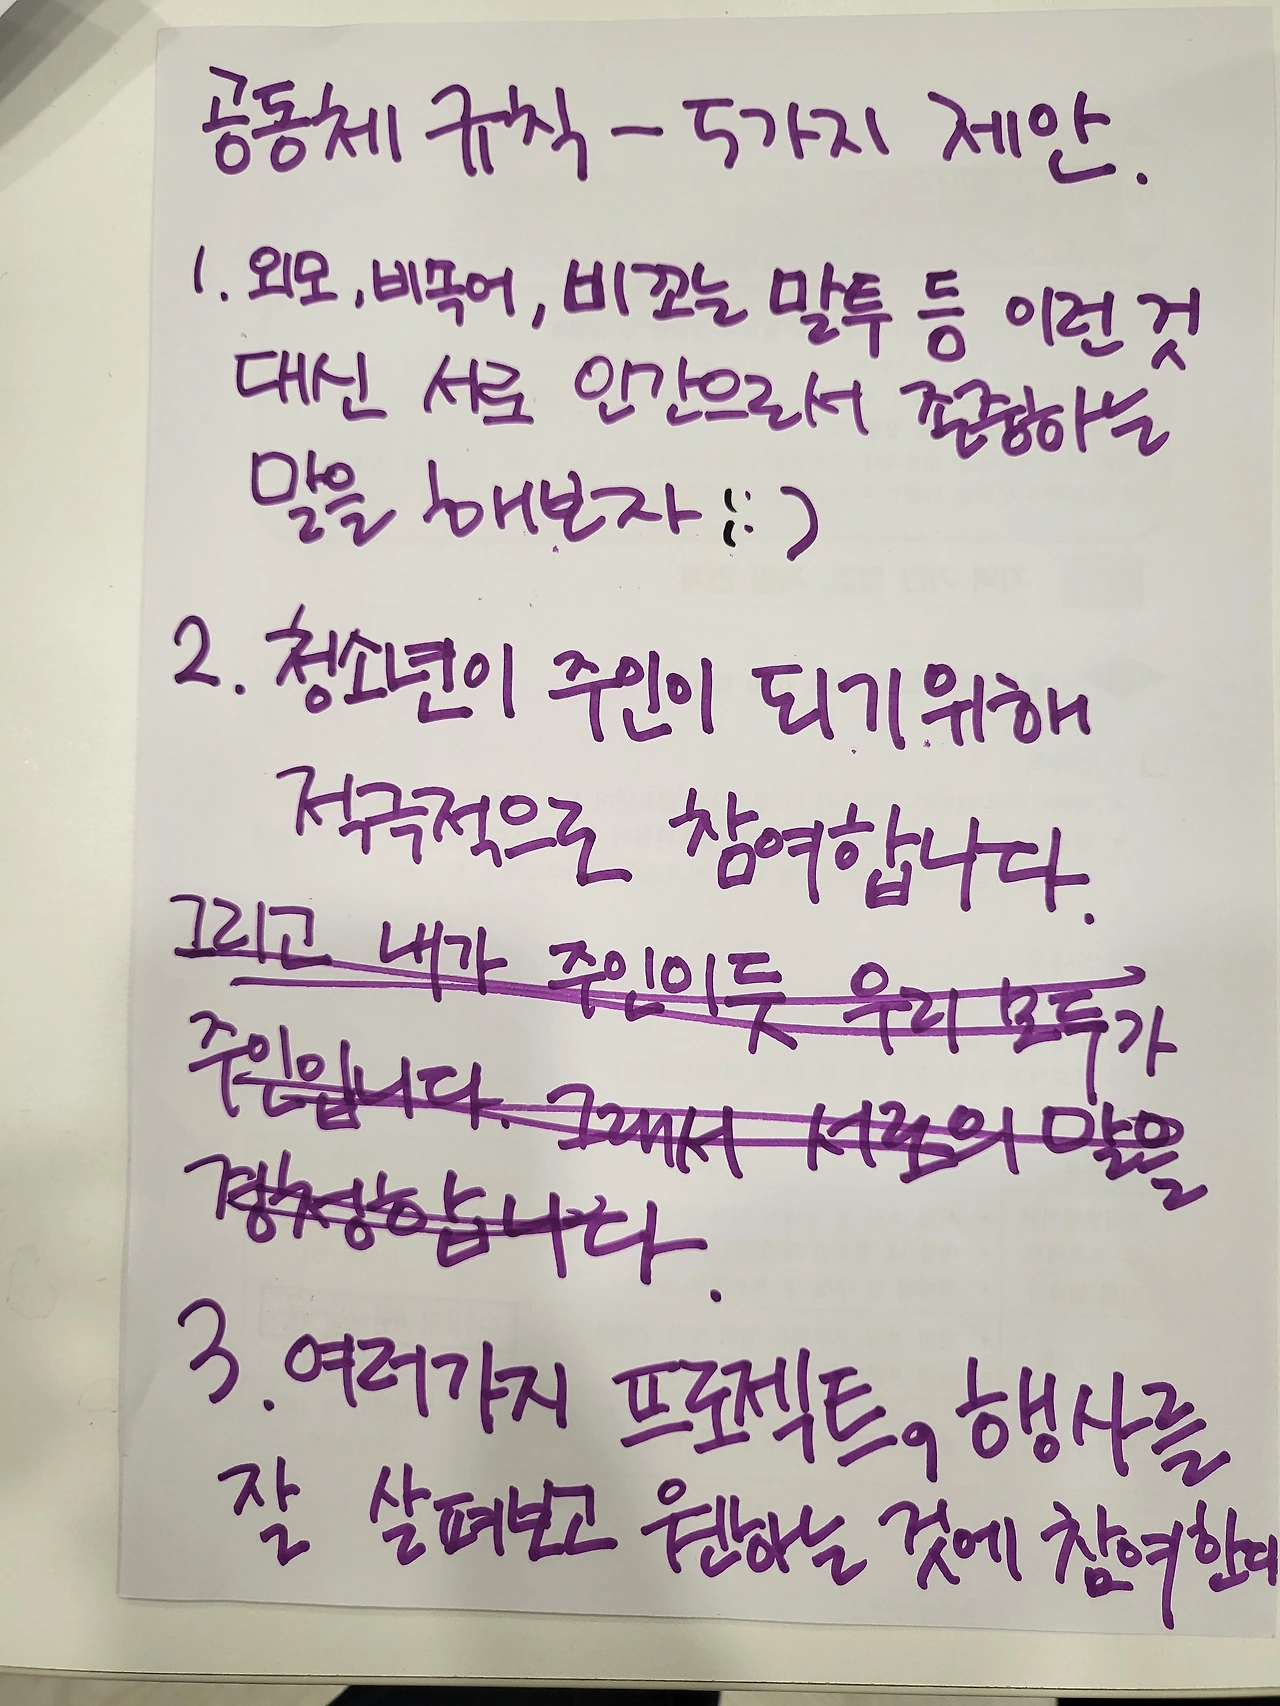 공동체 규칙 - 5가지 제안.
1. 외모, 비속어, 비꼬는 말투 등 이런 것
대신 서로 인간으로서 존중하는
말을 해보자 :)
2. 청소년이 주인이 되기 위해
적극적으로 참여합니다.
그리고 내가 주인이듯 우리 모두가
주인입니다. 그래서 서로의 말을
경청합니다.
3. 여러가지 프로젝트, 행사를
잘 살펴보고 원하는 것에 참여한다